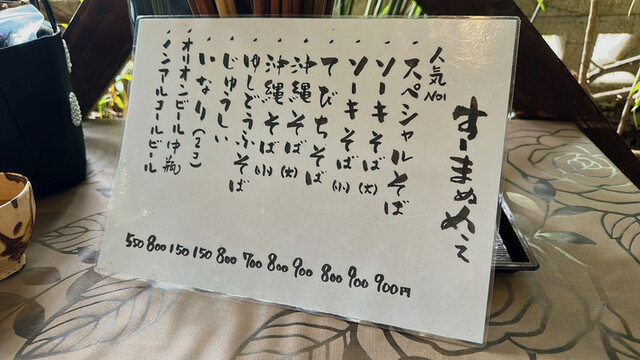 すーまぬめぇて
人気No1
・スペシャルそば 900円
・ソーキそば(大) 900
・ソーキそば(小) 800
・てびちそば 900
・沖縄そば(大) 800
・沖縄そば(小) 700
・ゆしどうふそば 800
・じゅうしぃ 150
・いなり(2コ) 150
・オリオンビール中瓶 800
・ノンアルコールビール 550